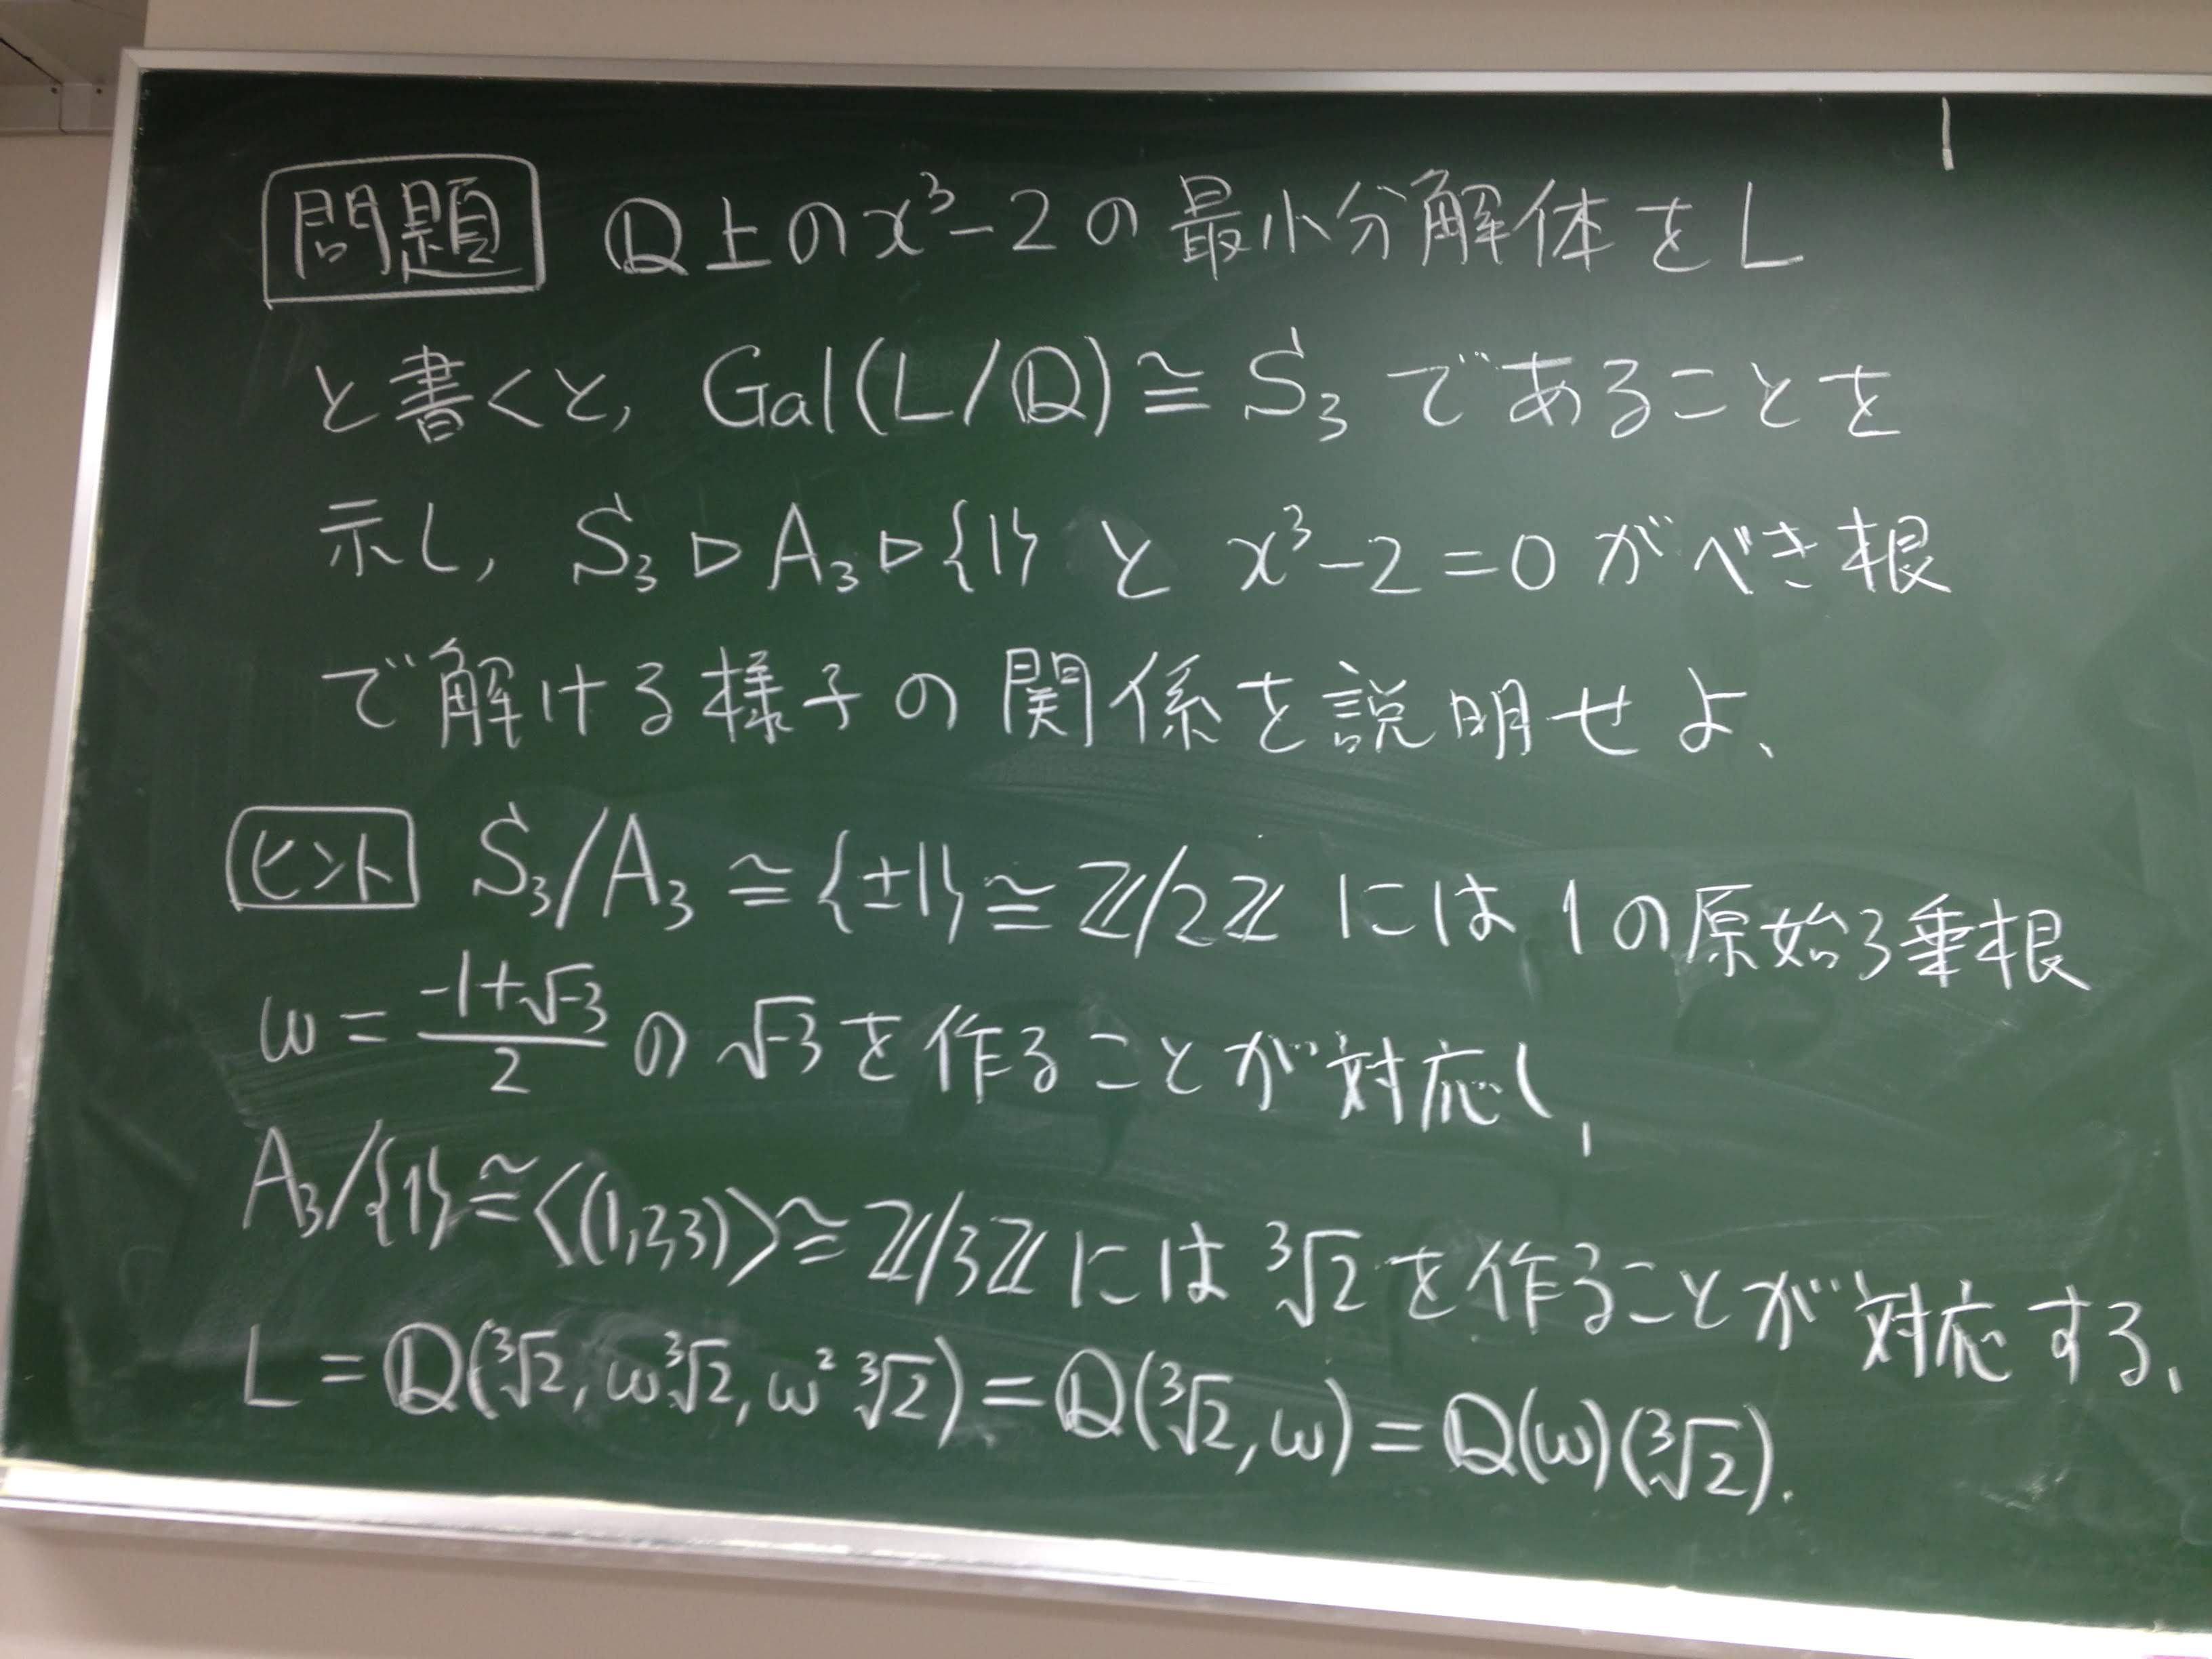 問題 ℚ上のx³-2の最小分解体をL
と書くと, Gal(L/ℚ)≅S₃であることを
示し, S₃▷A₃▷{1}とx³-2=0がべき根
で解ける様子の関係を説明せよ、
ヒント S₃/A₃≅{±1}≅ℤ/2ℤには1の原始3乗根
ω=(-1+√-3)/2の√-3を作ることが対応し,
A₃/{1}≅〈(1,2,3)〉≅ℤ/3ℤには³√2を作ることが対応する、
L=ℚ(³√2, ω³√2, ω²³√2)=ℚ(³√2, ω)=ℚ(ω)(³√2).